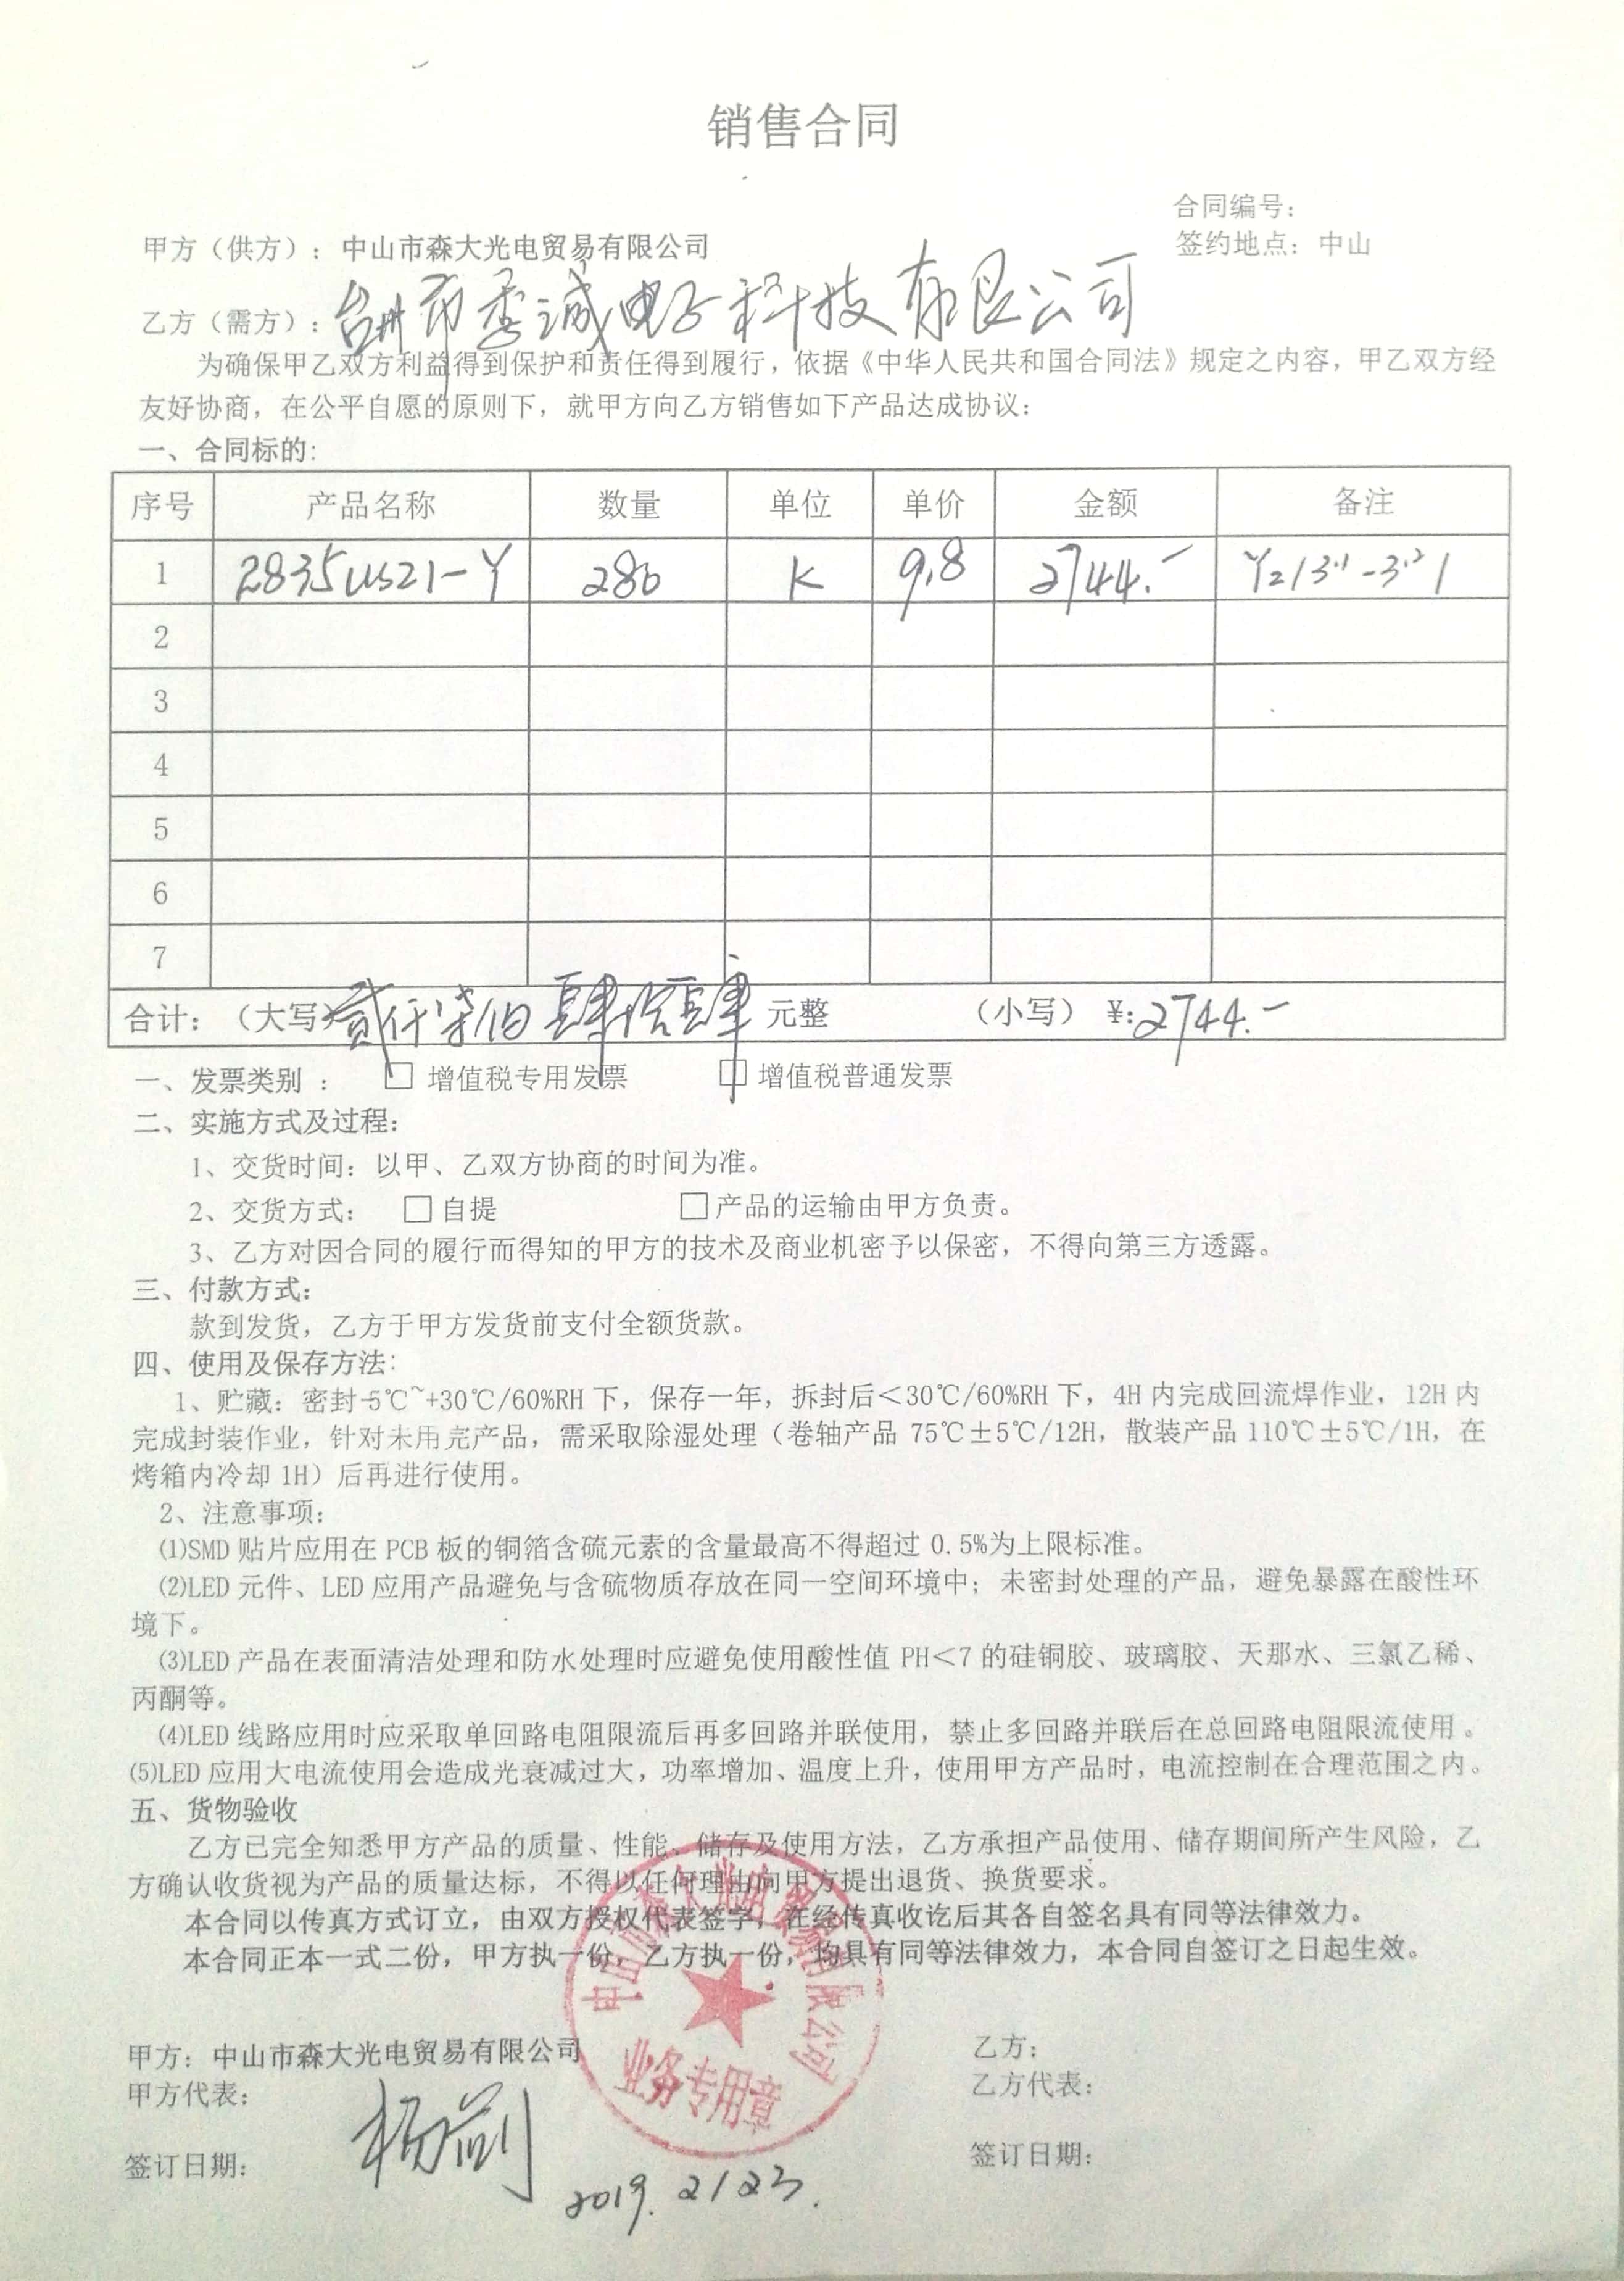 销售合同
合同编号：
甲方（供方）：中山市森大光电贸易有限公司
签约地点：中山
乙方（需方）：台州市秀诚电子科技有限公司
为确保甲乙双方利益得到保护和责任得到履行，依据《中华人民共和国合同法》规定之内容，甲乙双方经
友好协商，在公平自愿的原则下，就甲方向乙方销售如下产品达成协议：
一、合同标的：
序号 产品名称 数量 单位 单价 金额 备注
1 280 K 9.8 2744.-
2
3
4
5
6
7
合计：（大写）贰仟柒佰肆拾肆 元整 （小写）¥：2744.-
一、发票类别 ： □ 增值税专用发票 □ 增值税普通发票
二、实施方式及过程：
1、交货时间：以甲、乙双方协商的时间为准。
2、交货方式： □ 自提 □产品的运输由甲方负责。
3、乙方对因合同的履行而得知的甲方的技术及商业机密予以保密，不得向第三方透露。
三、付款方式：
款到发货，乙方于甲方发货前支付全额货款。
四、使用及保存方法：
1、贮藏：密封-5℃~+30℃/60%RH 下，保存一年，拆封后＜30℃/60%RH 下，4H 内完成回流焊作业，12H 内
完成封装作业，针对未用完产品，需采取除湿处理（卷轴产品 75℃±5℃/12H，散装产品 110℃±5℃/1H，在
烤箱内冷却 1H）后再进行使用。
2、注意事项：
⑴SMD 贴片应用在 PCB 板的铜箔含硫元素的含量最高不得超过 0.5%为上限标准。
⑵LED 元件、LED 应用产品避免与含硫物质存放在同一空间环境中；未密封处理的产品，避免暴露在酸性环
境下。
⑶LED 产品在表面清洁处理和防水处理时应避免使用酸性值 PH＜7 的硅铜胶、玻璃胶、天那水、三氯乙稀、
丙酮等。
⑷LED 线路应用时应采取单回路电阻限流后再多回路并联使用，禁止多回路并联后在总回路电阻限流使用 。
⑸LED 应用大电流使用会造成光衰减过大，功率增加、温度上升，使用甲方产品时，电流控制在合理范围之内。
五、货物验收
乙方已完全知悉甲方产品的质量、性能、储存及使用方法，乙方承担产品使用、储存期间所产生风险，乙
方确认收货视为产品的质量达标，不得以任何理由向甲方提出退货、换货要求。
本合同以传真方式订立，由双方授权代表签字，在经传真收讫后其各自签名具有同等法律效力。
本合同正本一式二份，甲方执一份，乙方执一份，均具有同等法律效力，本合同自签订之日起生效。
中山市森大光电贸易有限公司
业务专用章
甲方：中山市森大光电贸易有限公司
乙方：
甲方代表：
乙方代表：
杨剑
签订日期：
签订日期：
2019. 2/23.